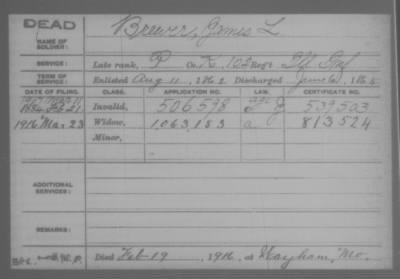 DEAD
NAME OF SOLDIER: Brewer, James L.
SERVICE: Late rank, P Co. K, 102 Reg't Ills Inf
TERM OF SERVICE: Enlisted Aug 11, 1862 Discharged June 6, 1865
DATE OF FILING. CLASS. APPLICATION NO. LAW. CERTIFICATE NO.
Invalid, 506,598 539,503
1916 Mar. 23 Widow, 1,063,153 a. 813524
Minor,
ADDITIONAL SERVICES:
REMARKS:
Died Feb-19, 1916, at Mo.